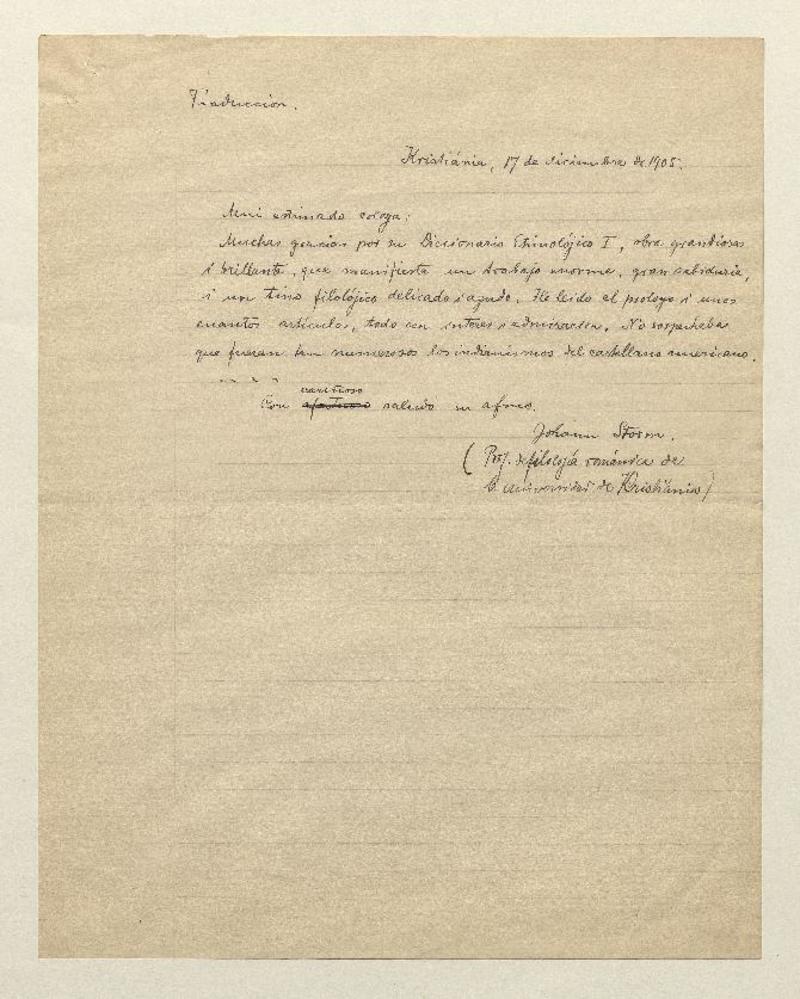 Traduccion.
Kristiánia, 17 de diciembre de 1905.
Mui estimado colega:
Muchas gracias por su Diccionario Etimolójico I, obra grandiosa
i brillante, que manifiesta un trabajo enorme, gran sabiduria,
i un tino filolójico delicado i agudo. He leido el prologo i unos
cuantos artículos, todo con interes i admiracion. No sospechaba
que fueran tan numerosos los indianismos del castellano americano.
- - - -
cariñoso
Con afectuoso saludo su afmo.
Johann Storm.
(Prof. de filolojía románica de
la universidad de Kristiánia)